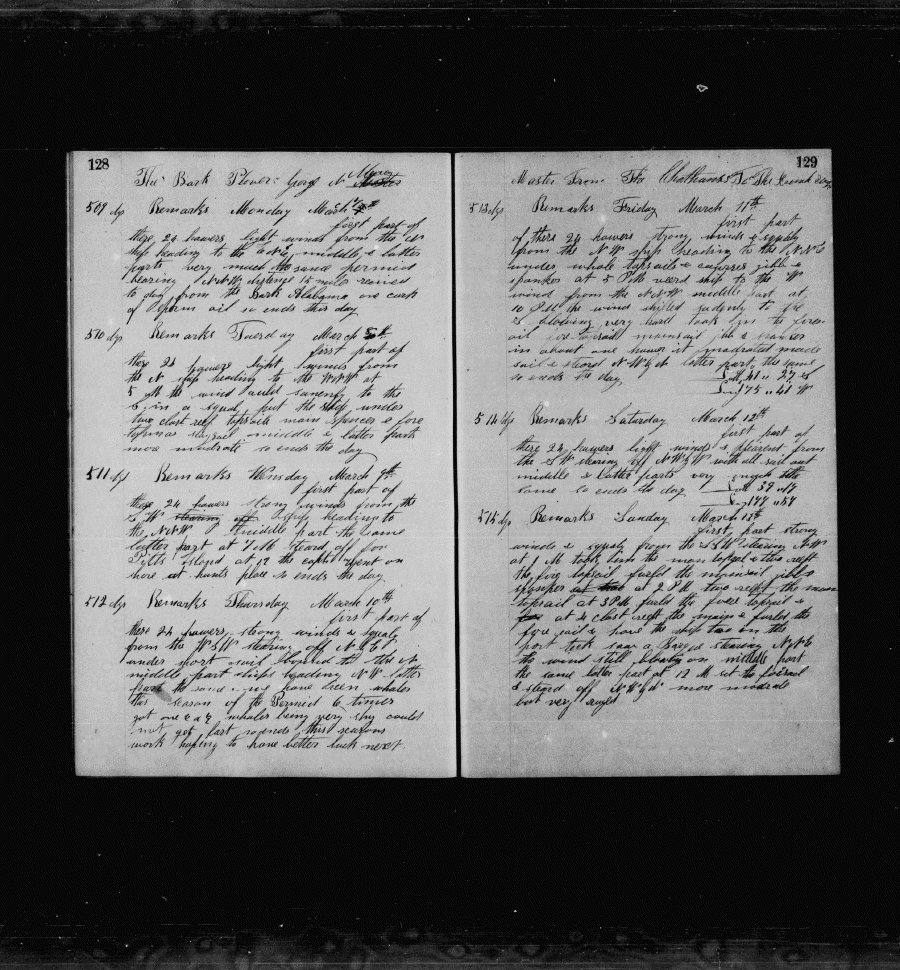 128
The Bark Plover Georg N Moxer
509 dys Remarks Monday March 7th
first part of
these 24 howers light winds from the
ship heading to the middle & latter
parts very much the same
bearing NNW distence 15 miles
to day from the Bark Alabama one cask
of Sperm oil so ends this day
510 dys Remarks Tuesday March 8th
first part of
these 24 howers light winds from
the N ship heading to the WNW at
5 the wind sudenly to the
S in a squal put the ship under
two close reef topsails main spencer & fore
topmas staysail middle & latter parts
more modrate so ends the day
511 dys Remarks Wensday March 9th
first part of
these 24 howers strong winds from the
S W stearing off ship heading to
the NNW middle part the same
latter part at 7 AM steard off for
Pitts Island at 12 the captin went on
shore at hunts place so ends the day
512 dys Remarks Thursday March 10th
first part of
these 24 howers strong winds & squaly
from the WSW stearing off N E
under short sail to the N
middle part ships heading NW latter
part the same we have seen whales
this season of the 6 times
got one & whales being very shy could
not get fast so ends this seasons
work hoping to have better luck next
129
Master From The Chathams To The
513 dys Remarks Friday March 11th
first part
of these 24 howers strong winds & squaly
from the N W ship heading to the NNE
under whole topsails & courses jib &
spanker at 5 PM weard ship to the W
wind from the NNW middle part at
10 PM the wind shifted sudenly to the
S blowing very hard took in the fore
sail fore topsail mainsail jib & spanker
in about one hower it modrated made
sail & steard NW latter part the same
so ends the day Lat 41 " 27 S
Lon 175 " 41 W
514 dys Remarks Saturday March 12th
first part of
these 24 howers light winds & plesent from
the SW stearing off NW with all sail out
middle & latter parts very much the
same so ends the day Lat 39 " 14
Lon 177 " 57
515 dys Remarks Sunday March 13th
first part strong
winds & squaly from the SSW stearing NNW
at 1 PM took in the main topgal & two reeft
the fore topsail furld the mainsail jib &
spanker at 2 PM two reeft the main
topsail at 3 PM furld the fore topsail &
at 4 close reeft the main & furled the
fore sail & hove the ship too on the
port tack saw a Bark stearing NNE
the wind still blowing on middle part
the same latter part at 12 M set the foresail
& steard off NW more modrate
but very ruged